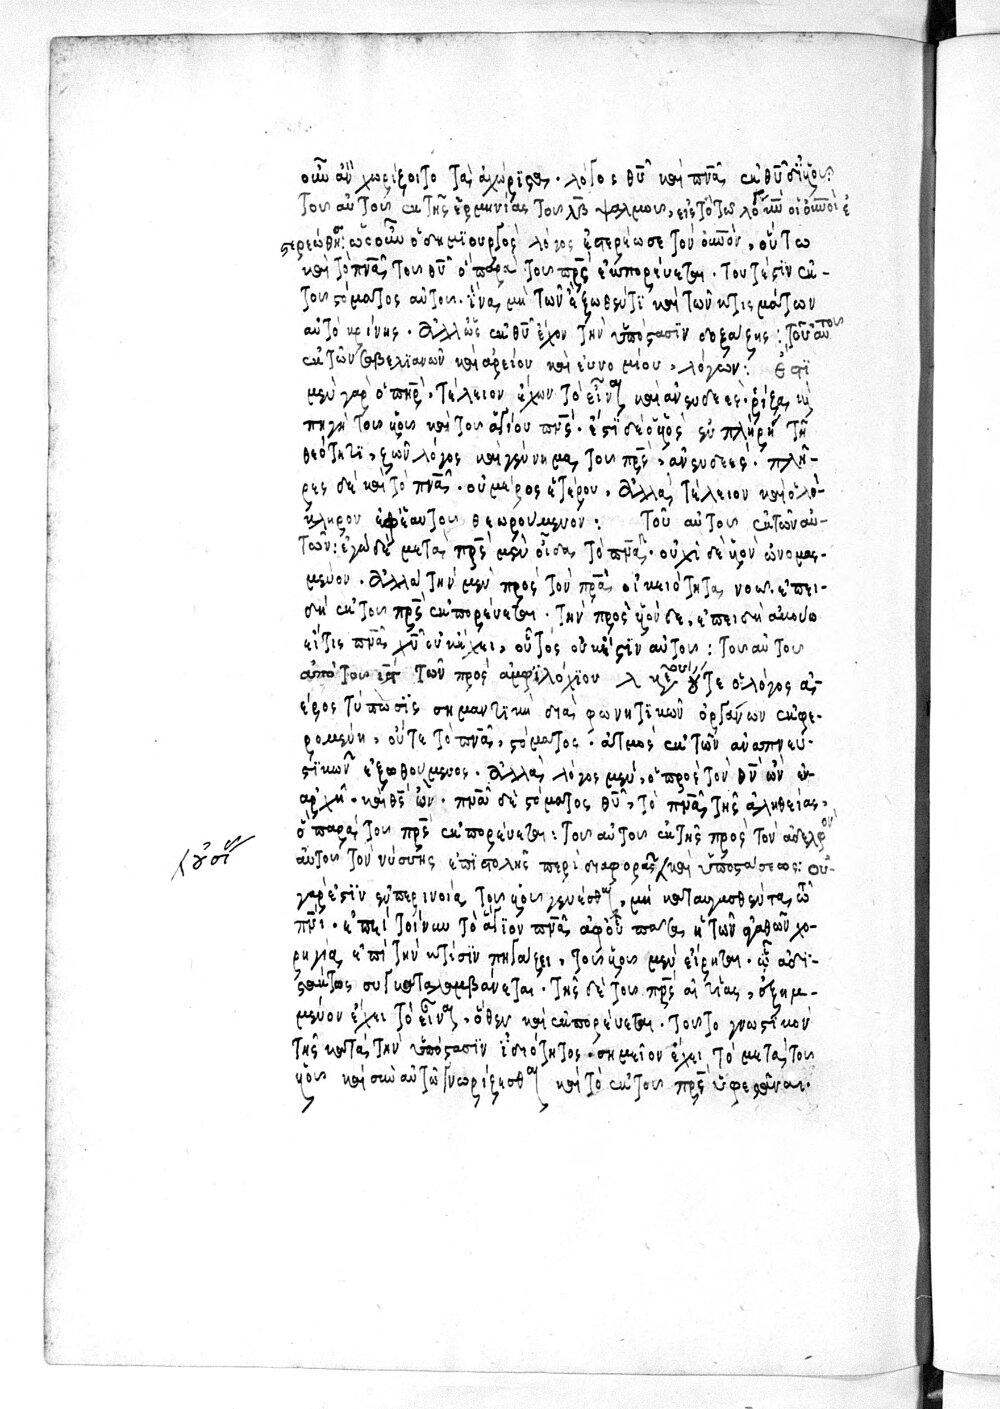 οὖν ἂν χωρίζοιτο τὰ ἀχώριστα. λόγος θῦ καὶ πνᾶ ἐκ θῦ
τοῦ αὐτοῦ ἐκ τῆς ἑρμηνίας τοῦ λβ ψαλμοῦ, εἰς τὸ τῶ λόγω οἱ οὐνοὶ ἐ
στερεώθησαν: ὡς οὖν ὁ δημιουργὸς λόγος ἐστερέωσε τὸν οὐνὸν, οὕτω
καὶ τὸ πνᾶ τοῦ θῦ ὃ παρὰ τοῦ πρς ἐκπορεύεται. τουτέστιν ἐκ
τοῦ στόματος αὐτοῦ. ἵνα μὴ τῶν ἔξωθέν τι καὶ τῶν κτισμάτων
αὐτὸ κρίνης. ἀλλ' ὡς ἐκ θῦ ἔχον τὴν ὑπόστασιν δοξάζης: τοῦ αὐτοῦ
ἐκ τῶν σαβελιανῶν καὶ ἀρείου καὶ εὐνομίου, λόγων: ἐστι
μὲν γὰρ ὁ πηρ, τέλειον ἔχων τὸ εἶναι καὶ ἀνενδεές. ῥίζα κὶ
πηγὴ τοῦ υἱοῦ καὶ τοῦ ἁγίου πνς. ἐστι δὲ ὁ υἱὸς ἐν πλήρη τῆ
θεότητι, ζῶν λόγος καὶ γέννημα τοῦ πρς, ἀνενδεές. πλῆ-
ρες δὲ καὶ τὸ πνᾶ. οὐ μέρος ἑτέρου, ἀλλὰ τέλειον καὶ ὁλό-
κληρον ἐφ' ἑαυτοῦ θεωρούμενον: τοῦ αὐτοῦ ἐκ τῶν αὐ-
τῶν: ἐγὼ δὲ μετὰ πρς μὲν οἶδα τὸ πνᾶ. οὐχὶ δὲ υἱὸν ὠνομασ-
μένον. ἀλλὰ τὴν μὲν πρὸς τὸν πρᾶ οἰκειότητα νοῶ. ἐπει-
δὴ ἐκ τοῦ πρς ἐκπορεύεται. τὴν πρὸς υἱὸν δὲ, ἐπειδὴ ἀκούω
εἴ τις πνᾶ χῦ οὐκ ἔχει, οὗτος οὐκ ἔστιν αὐτοῦ: τοῦ αὐτοῦ
ἀπὸ τοῦ τῶν πρὸς ἀμφιλόχιον οὔτε ὁ λόγος ἀ-
έρος τύπωσις σημαντικὴ διὰ φωνητικῶν ὀργάνων ἐκφε-
ρομένη, οὔτε τὸ πνᾶ, στόματος. ἀτμὸς ἐκ τῶν ἀναπνευ-
στικῶν ἐξωθούμενος. ἀλλὰ λόγος μὲν, ὁ πρὸς τὸν θν ὢν ἐν
ἀρχῆ. καὶ θς ὤν. πνᾶ δὲ στόματος θῦ, τὸ πνᾶ τῆς ἀληθείας,
ὃ παρὰ τοῦ πρς ἐκπορεύεται: τοῦ αὐτοῦ ἐκ τῆς πρὸς τὸν ἀδελφὸν
αὐτοῦ τὸν νύσσης ἐπιστολῆς περὶ διαφορᾶς καὶ ὑποστάσεως: οὐ-
οὐσί
γάρ ἐστιν ἐν περινοία τοῦ υἱοῦ γενέσθαι, μὴ καταυγασθέντα τῶ
πνι. ἐπεὶ τοίνυν τὸ ἅγιον πνᾶ ἀφ' οὗ πᾶσα ἡ τῶν ἀγαθῶν χο-
ρηγία ἐπὶ τὴν κτίσιν πηγάζει, τοῦ υἱοῦ μὲν εἴρηται. ᾧ ἀδι-
αστάτως συγκαταλαμβάνεται. τῆς δὲ τοῦ πρς αἰτίας, ἐξημ-
μένον ἔχει τὸ εἶναι, ὅθεν καὶ ἐκπορεύεται. τοῦτο γνωστικὸν
τῆς κατὰ τὴν ὑπόστασιν ἰδιότητος. σημεῖον ἔχει τὸ μετὰ τοῦ
υἱοῦ καὶ σὺν αὐτῶ γνωρίζεσθαι καὶ τὸ ἐκ τοῦ πρς ὑφεστάναι.